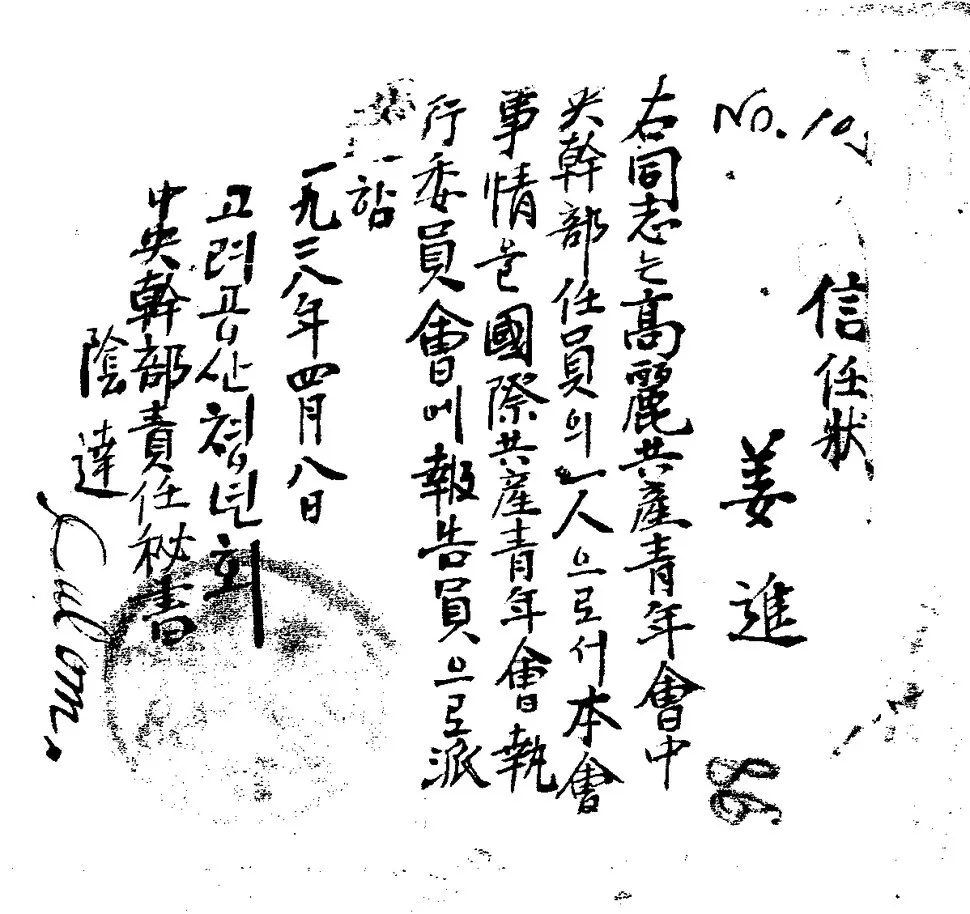 No. 10
信任狀
姜進
右同志는高麗共產青年會中
央幹部任員의一人으로서本會
事情을國際共產青年會執
行委員會에報告員으로派
함
一九二八年四月八日
고려공산청년회
中央幹部責任秘書
陰達